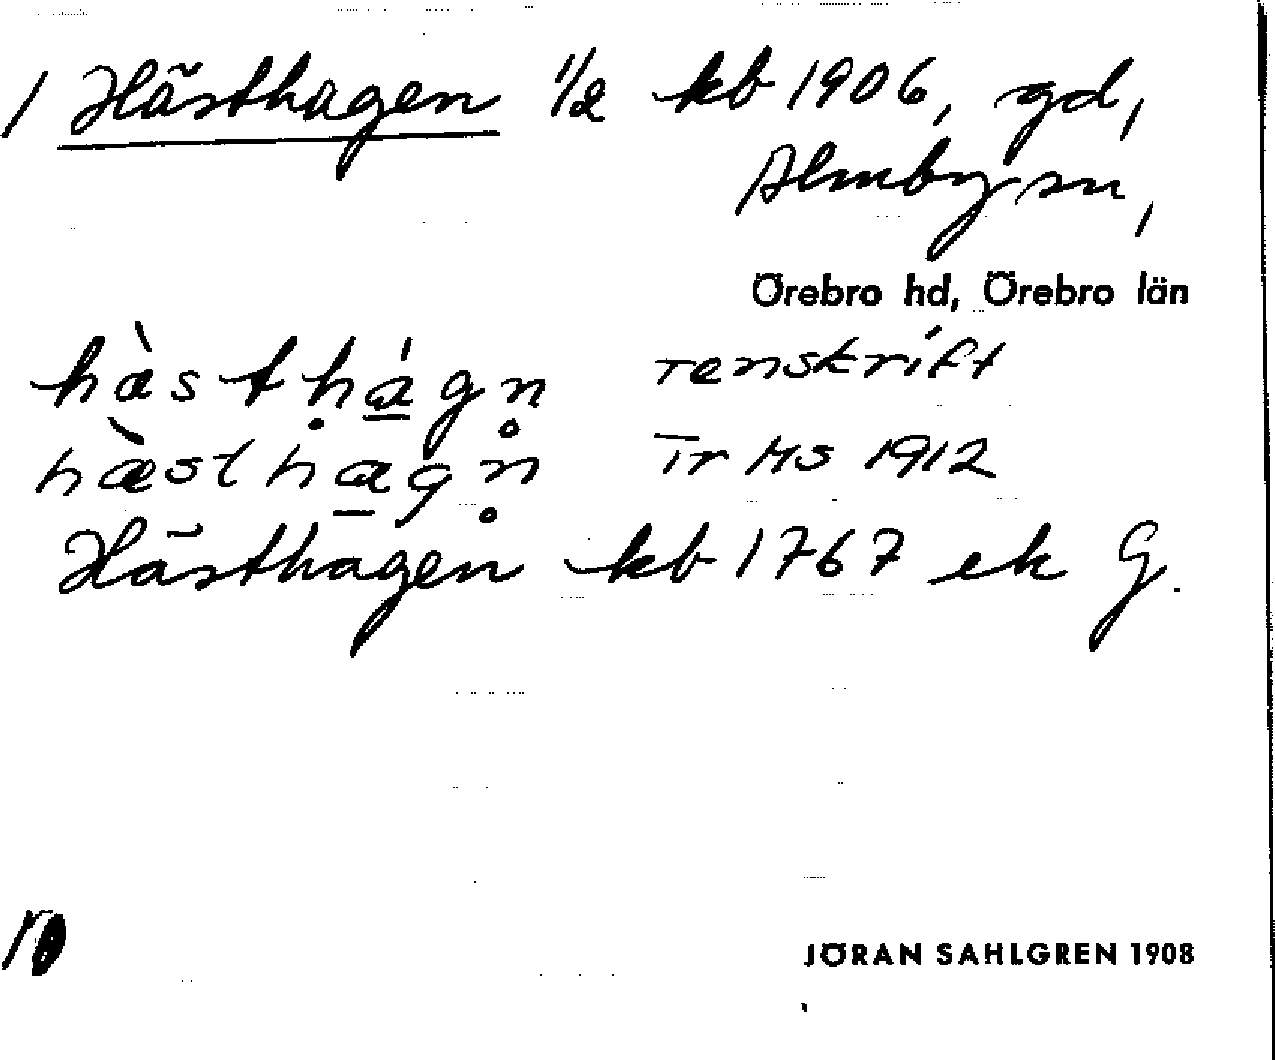 1 Hästhagen 1/2 kb 1906, gd,
Almby sn,
Örebro hd, Örebro län
hàsthágn renskrift
hæ̀sthagn Tr Hs 1912
Hästhagen kb 1767 ek G.
10
JÖRAN SAHLGREN 1908